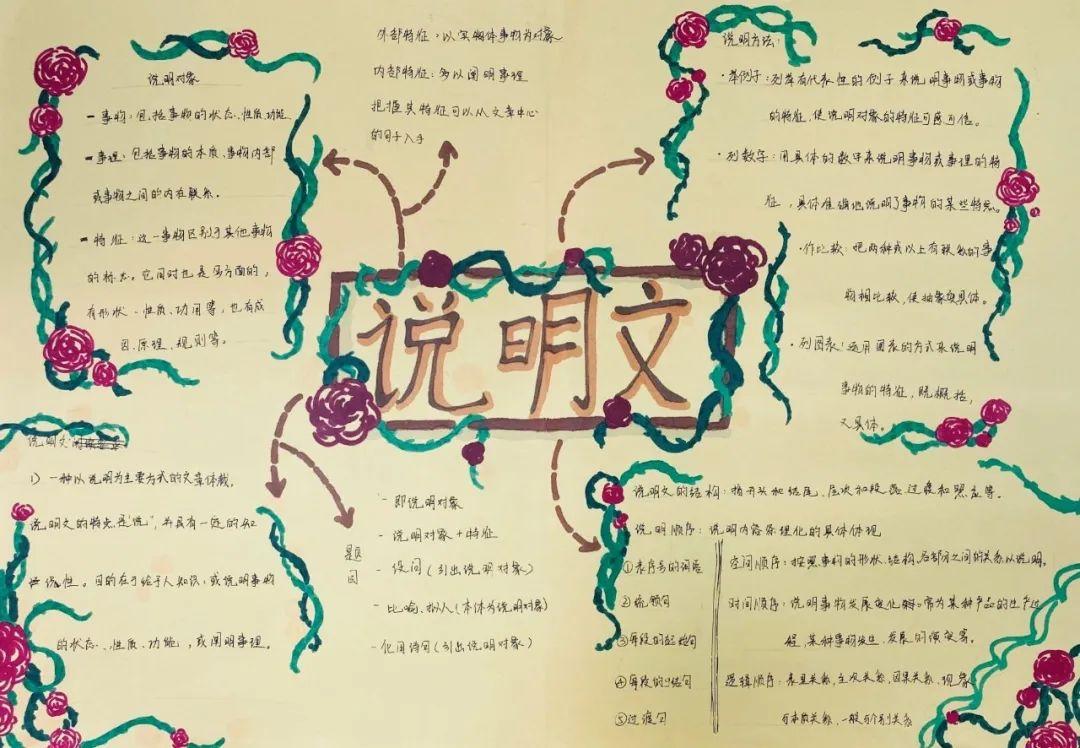 说明文
说明对象
- 事物：包括事物的状态、性质、功能
- 事理：包括事物的本质、事物内部
或事物之间的内在联系。
- 特征：这一事物区别于其他事物
的标志。它同时也是多方面的，
有形状、性质、功用等，也有成
因、原理、规则等。
外部特征：以实物体事物为对象
内部特征：多以阐明事理
把握其特征可以从文章中心
的句子入手
说明方法：
·举例子：列举有代表性的例子来说明事物或事物
的特征，使说明对象的特征可感可信。
·列数字：用具体的数字来说明事物或事理的特
征，具体准确地说明了事物的某些特点。
·作比较：把两种或以上有联系的事
物相比较，使抽象变具体。
·列图表：运用图表的方式来说明
事物的特征，既概括，
又具体。
说明文
1）一种以说明为主要方式的文章体裁。
说明文的特点是"说"，并具有一定的知
识性。目的在于给予人知识，或说明事物
的状态、性质、功能，或阐明事理。
题目
- 即说明对象
- 说明对象+特征
- 设问（引出说明对象）
- 比喻、拟人（本体为说明对象）
- 化用诗句（引出说明对象）
说明文的结构：指开头和结尾、层次和段落、过渡和照应等。
说明顺序：说明内容条理化的具体体现
①表序号的词语
②统领句
③每段的起始句
④每段的小结句
⑤过渡句
空间顺序：按照事物的形状、结构、各部分之间的关系以说明。
时间顺序：说明事物发展变化 常为某种产品的生产过
程，某种事物发生、发展的演变等。
逻辑顺序：表里关系，主次关系，因果关系，现象
与本质关系，一般与个别关系